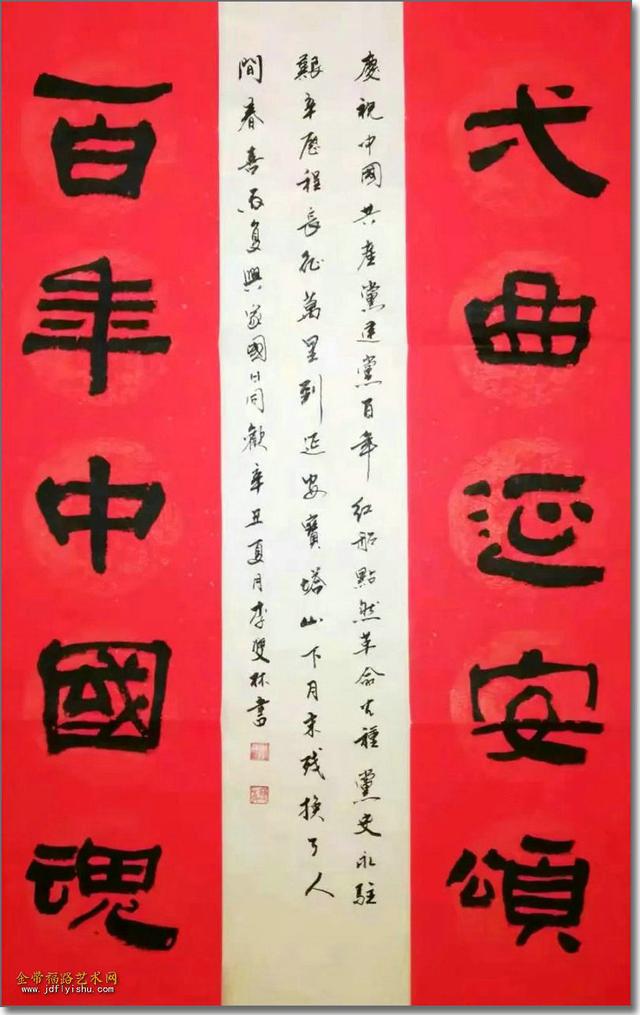 弌曲延安頌
慶祝中國共產黨建黨百年紅船點然革命火種黨史永駐
艱辛歷程長征萬里到延安寶塔山下月未残換了人
間春喜复興家國同歡辛丑夏月李雙林書
百年中國魂
金带福路艺术网
www.jdflyishu.com